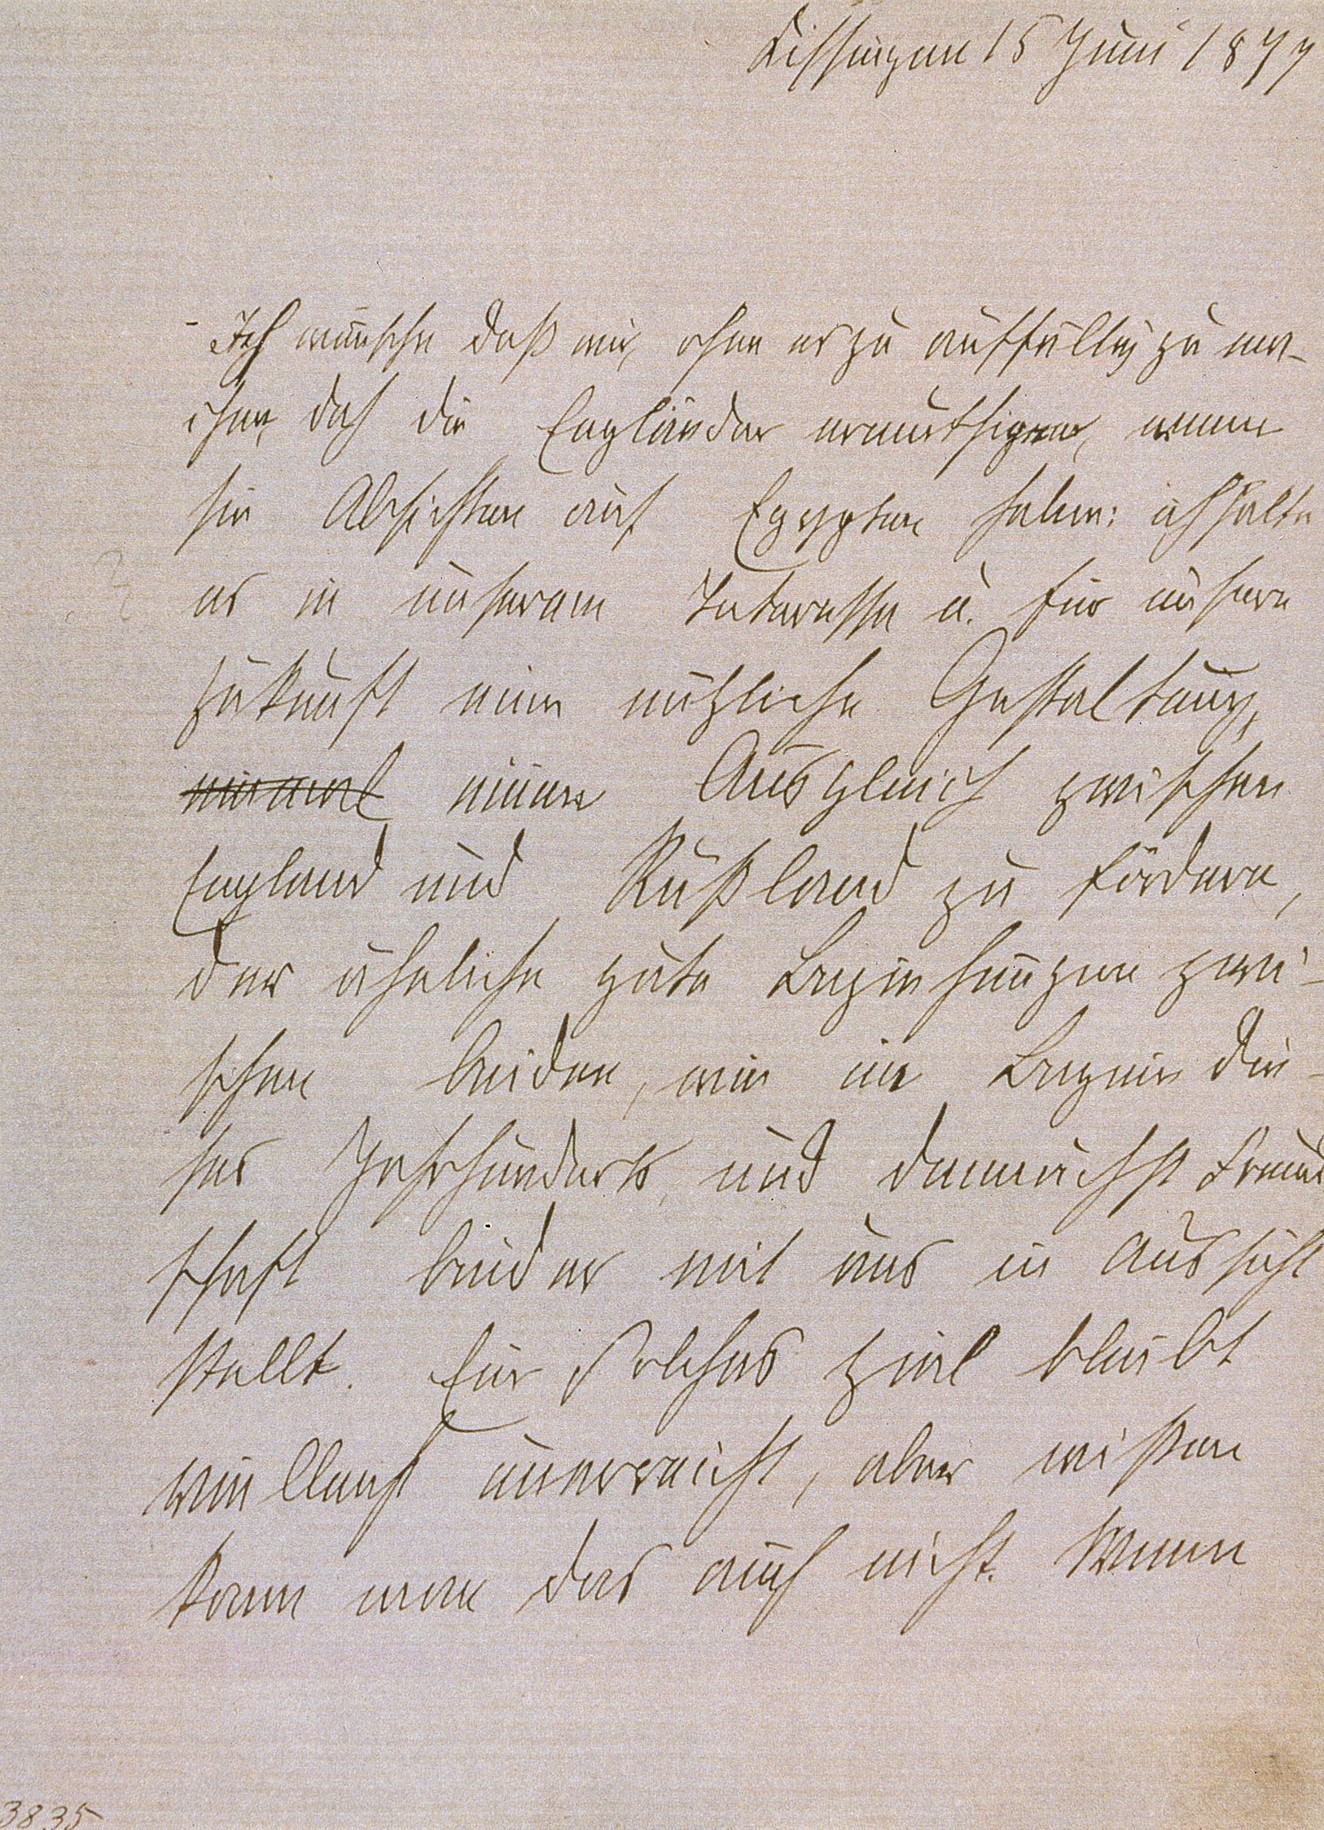 Kissingen 15 Juni 1877
Ich wünsche daß wir, ohne es zu auffällig zu ma-
chen, doch die Engländer ermuthigen, wenn
sie Absichten auf Egypten haben: ich halte
es in unserem Interesse u. für unsere
Zukunft eine nützliche Gestaltung,
einen Ausgleich zwischen
England und Rußland zu fördern,
der ähnliche gute Beziehungen zwi-
schen beiden, wie im Beginn die-
ses Jahrhunderts, und demnächst Freund
schaft beider mit uns in Aussicht
stellt. Ein solches Ziel bleibt
vielleicht unerreicht, aber wissen
kann man das auch nicht. Wenn
3835